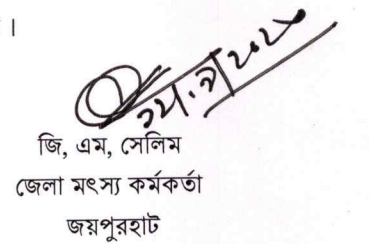 ।
জি, এম, সেলিম
জেলা মৎস্য কর্মকর্তা
জয়পুরহাট